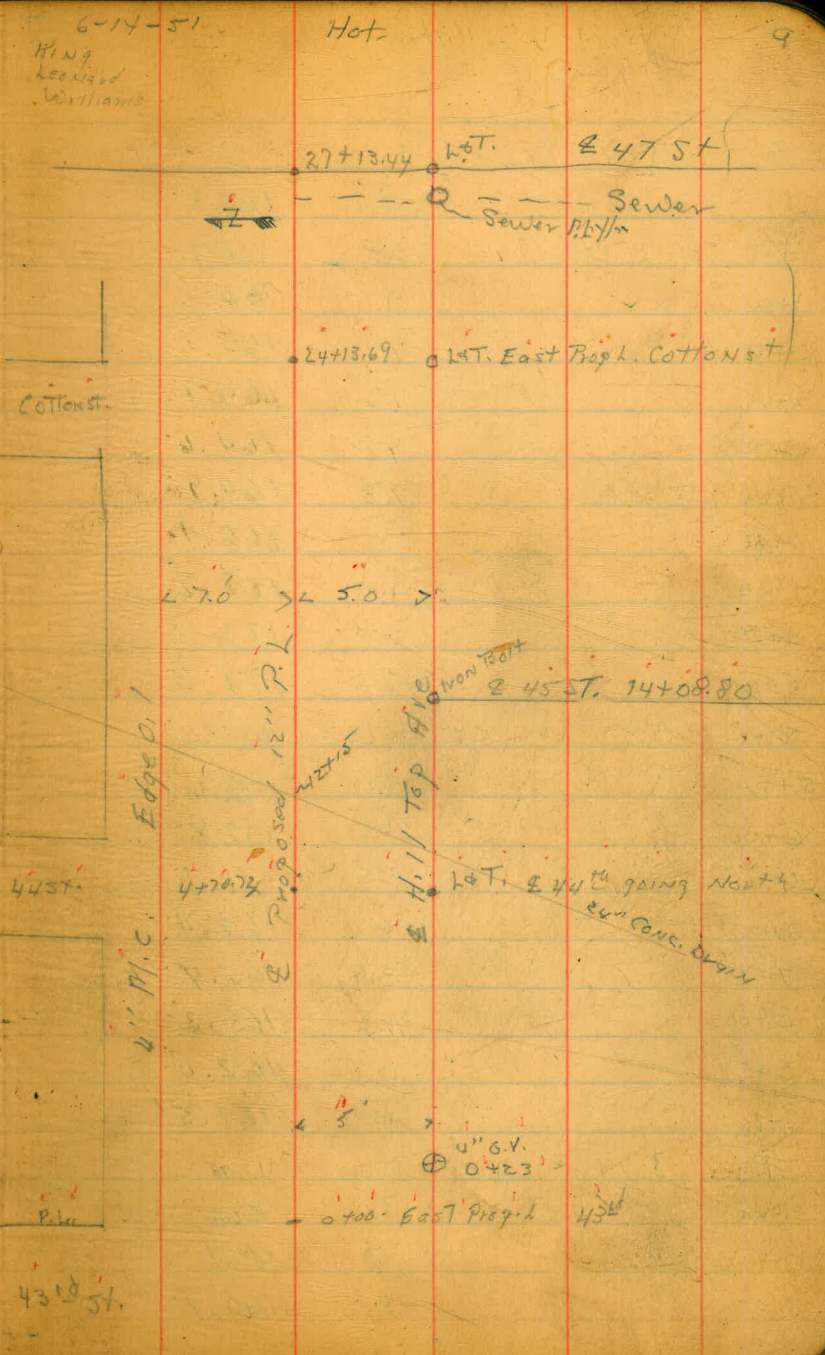 6-14-51 Hot 9
King
Leonard
Williams
27+13.44 L&T. ℄ 47 St
Sewer
Sewer
24+13.69 L&T. East Prop L. Cotton st
Cotton st.
7.0 5.0
Iron Bolt
℄ 45 ST. 14+08.80
42+15
4" M.C. Edge 0.1
℄ Proposed 12" P.L.
℄ Hill Top Ave
44 St. 4+70.73 L&T. ℄ 44th going North
24" Conc. Drain
5'
4" G.V.
0+23
P.L. 0+00 - East Prop. L 43rd
43rd St.